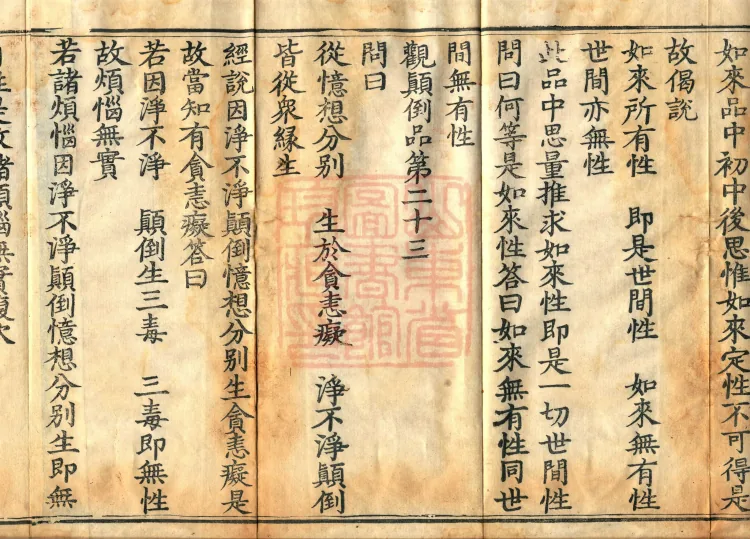 如來品中初中後思惟如來定性不可得是
故偈說
如來所有性　即是世間性　如來無有性
世間亦無性
此品中思量推求如來性即是一切世間性
問曰何等是如來性答曰如來無有性同世
間無有性
觀顛倒品第二十三
問曰
從憶想分別　生於貪恚癡　淨不淨顛倒
皆從眾緣生
經說因淨不淨顛倒憶想分別生貪恚癡是
故當知有貪恚癡答曰
若因淨不淨　顛倒生三毒　三毒即無性
故煩惱無實
若諸煩惱因淨不淨顛倒憶想分別生即無
自性是故諸煩惱無實復次
圖書館